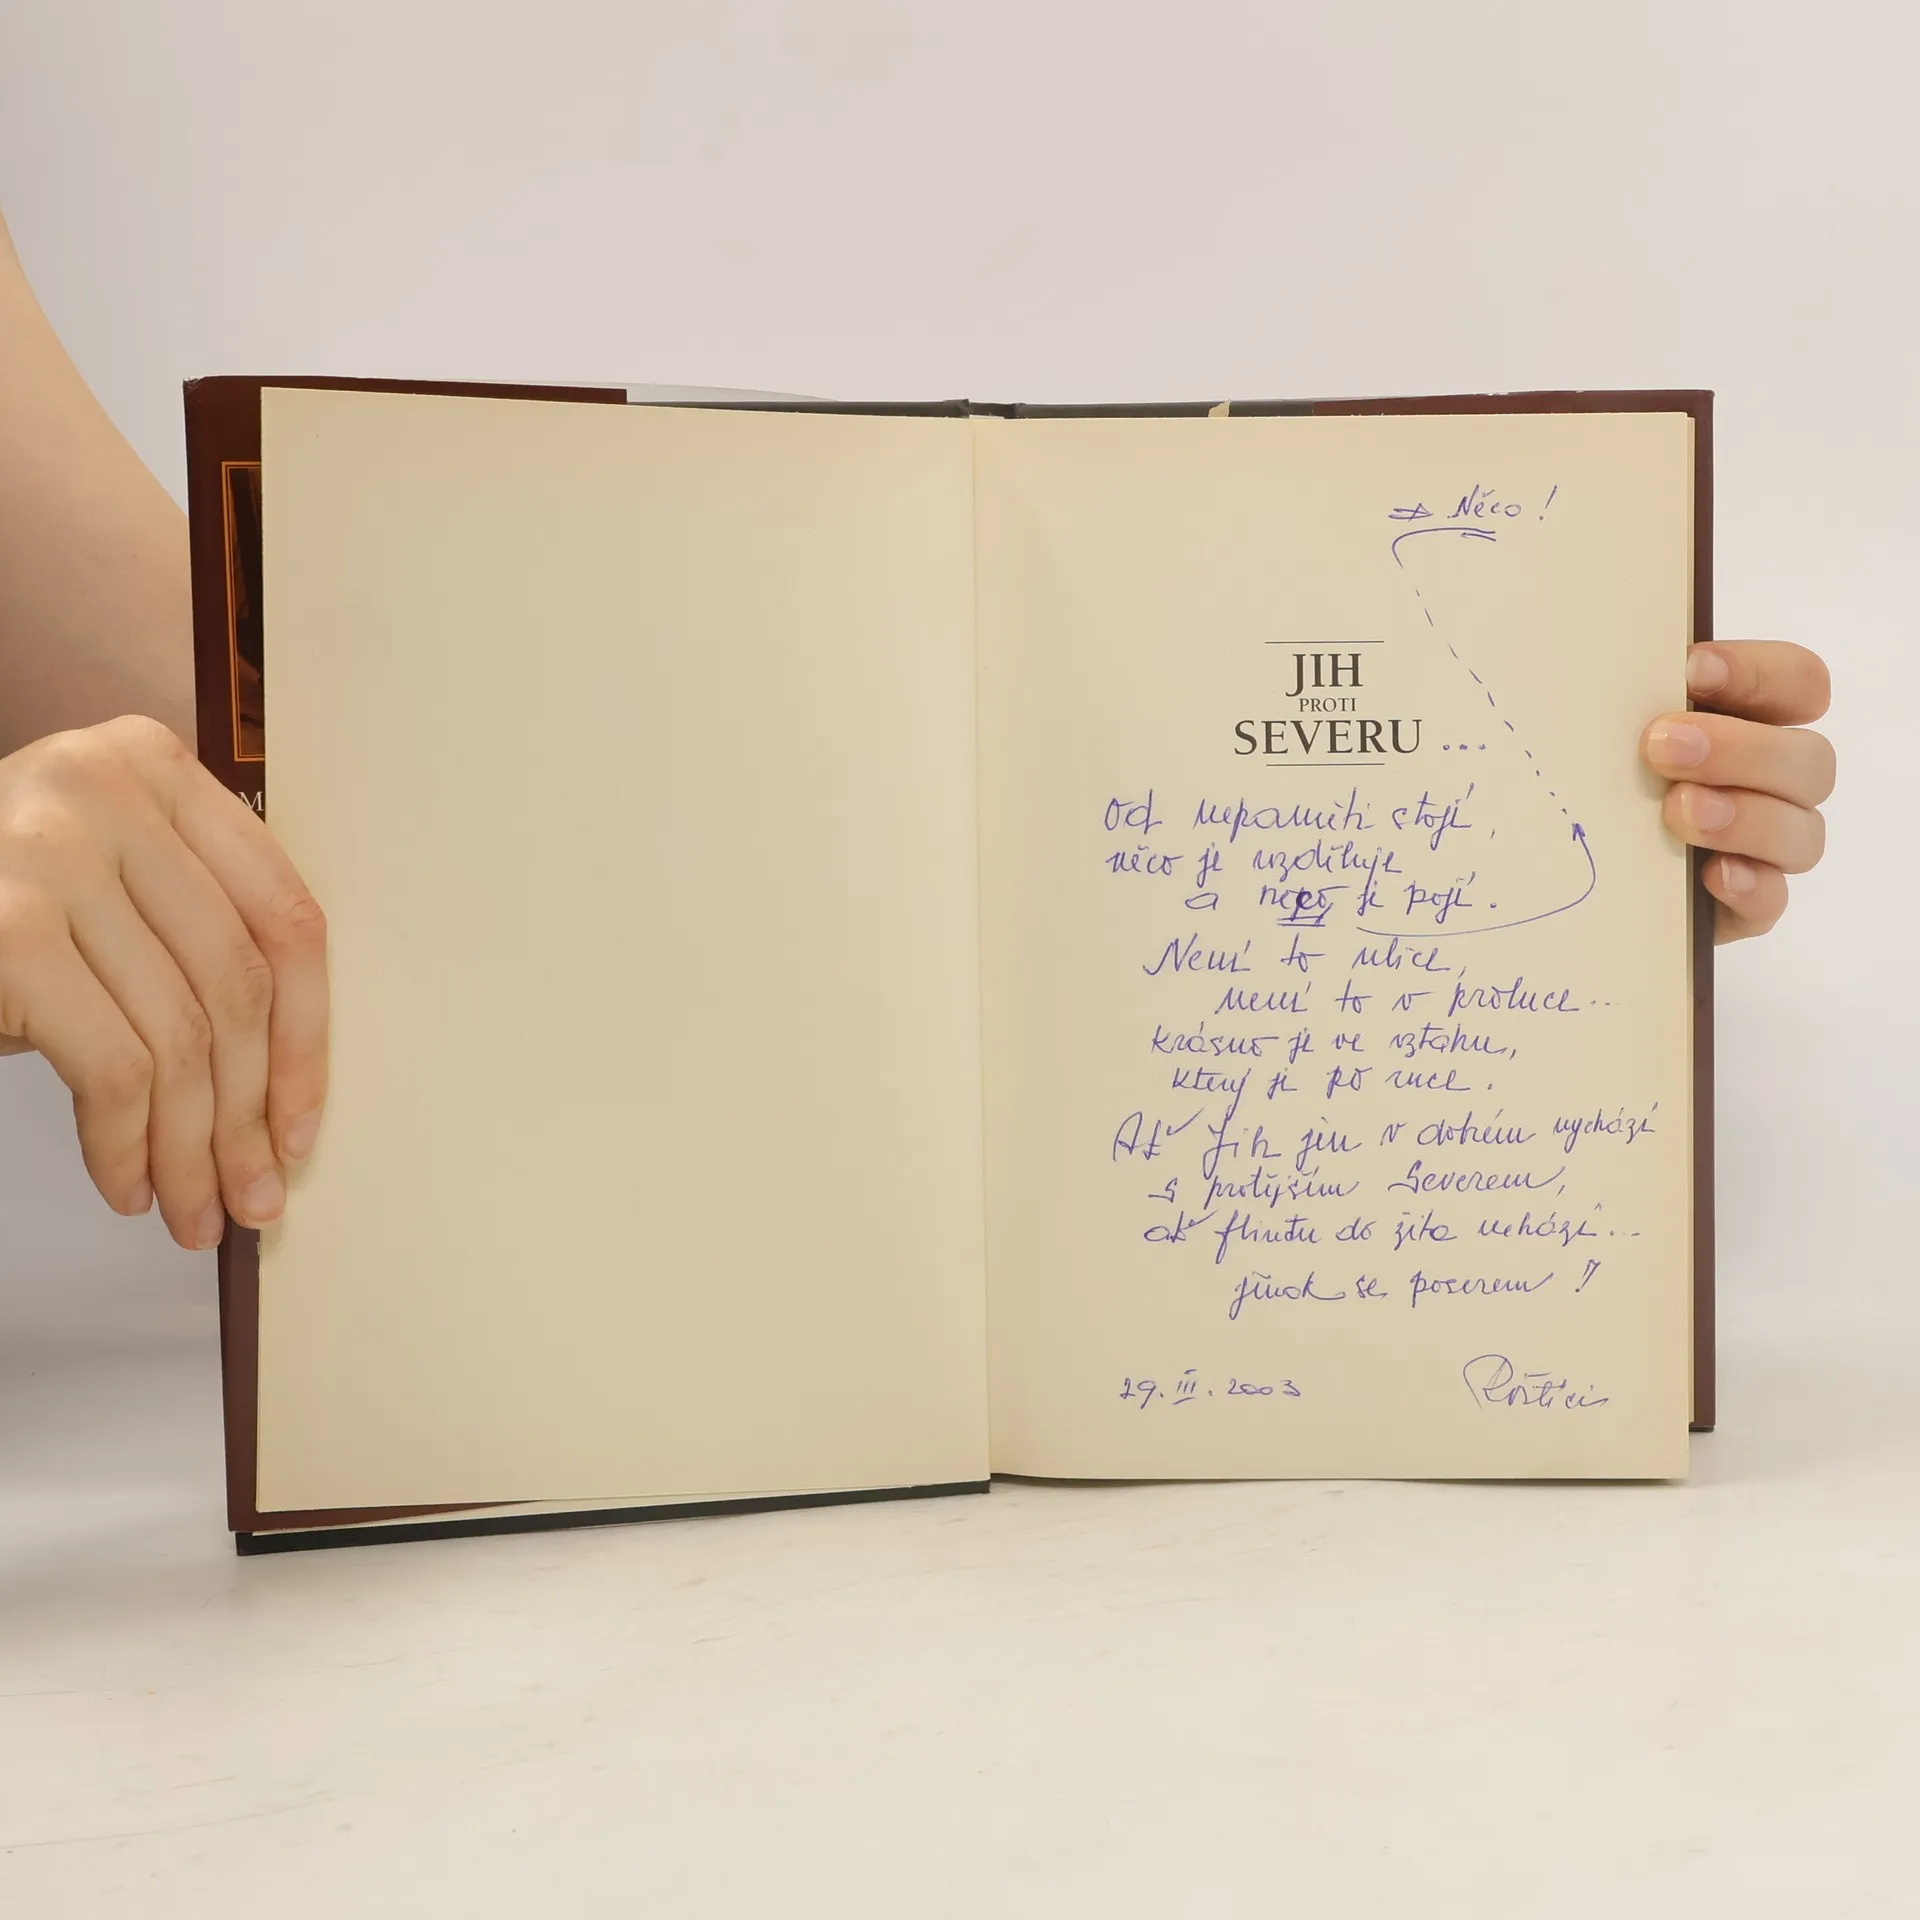 ⇒ Něco!
JIH
PROTI
SEVERU ...
Od nepaměti stojí,
něco je vzděluje
a je pojí.
Není to ulice,
není to v proluce..
krásno je ve vztahu,
který je po ruce.
Ať Jih jen v dobrém vychází
s protějším Severem,
ať flintu do žita nehází...
jinak se poserem!
29. III. 2003
M